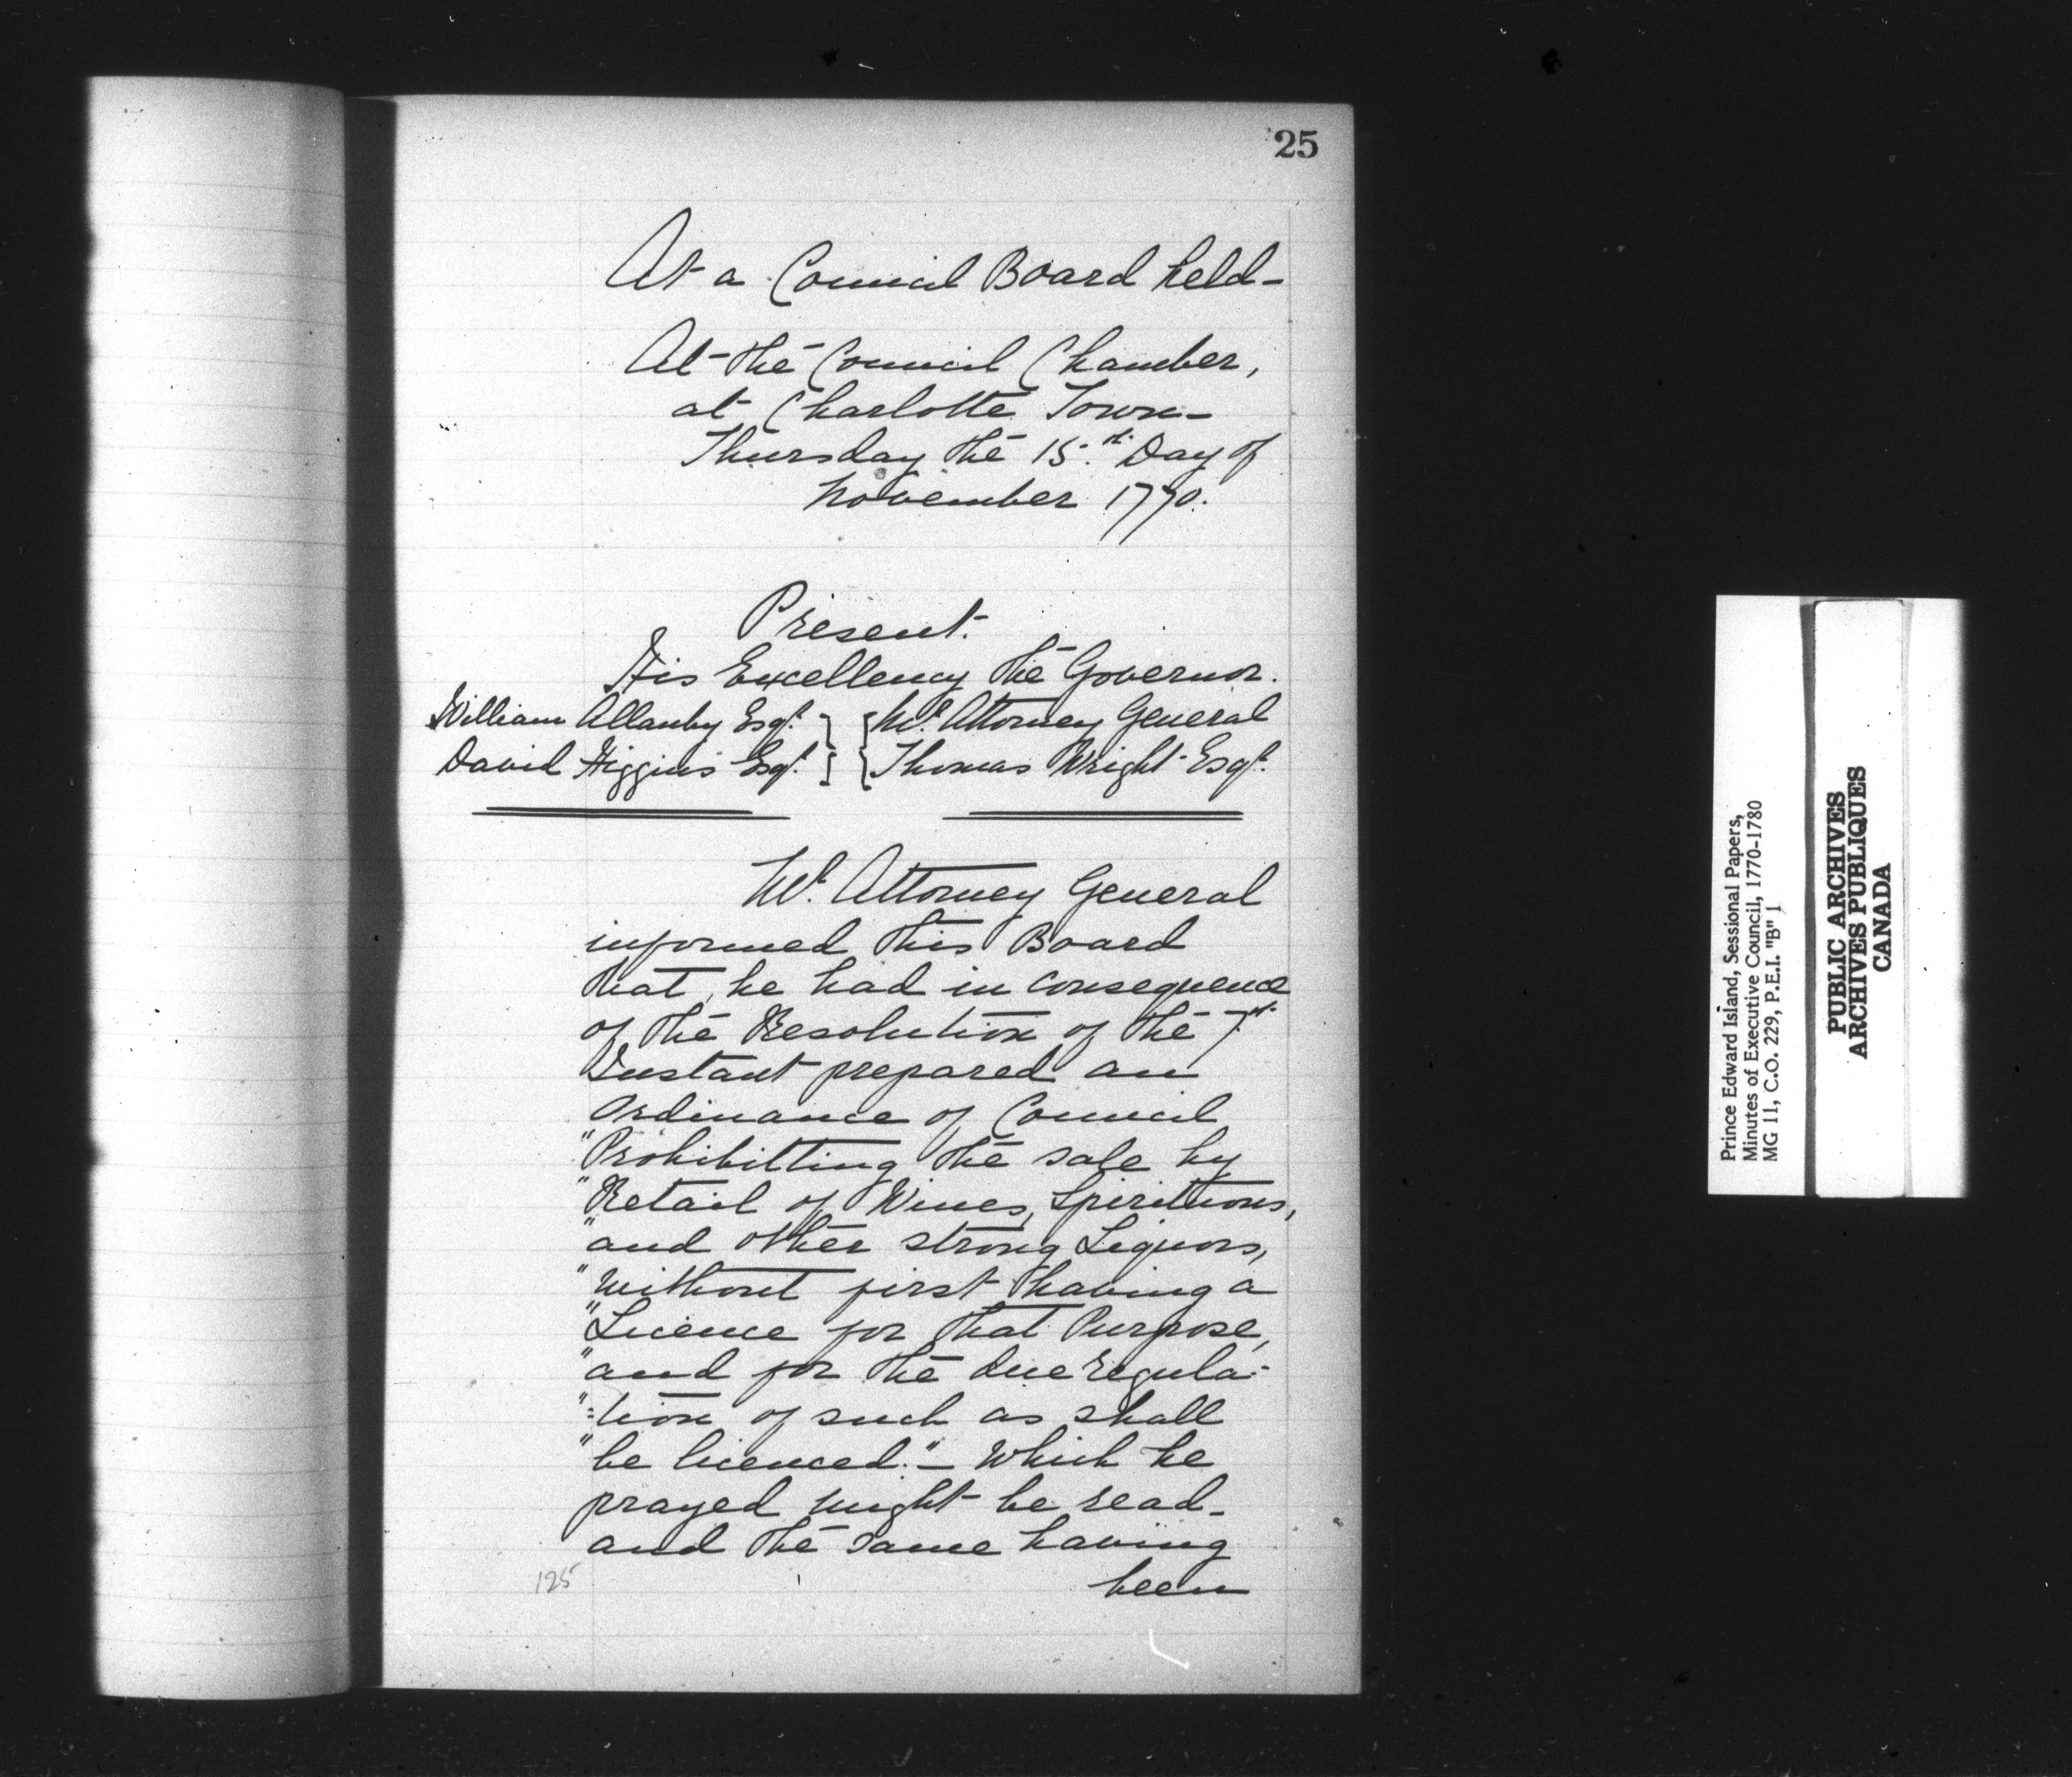 25
At a Council Board held-
At the Council Chamber,
at Charlotte Town-
Thursday the 15.th Day of
November 1770.
Present.
His Excellency the Governor.
William Allanby Esqr. } { Mr. Attorney General
David Higgins Esqr. } { Thomas Wright Esqr.
Mr. Attorney General
informed this Board
that, he had in consequence
of the Resolution of the 7th.
Instant prepared an
Ordinance of Council
"Prohibitting the sale by
"Retail of Wines, Spirituous,
"and other strong Liquors,
"without first having a
"Licence for that Purpose,
"and for the due regula-
":tion of such as shall
"be licenced."- Which he
prayed might be read-
and the same having
been
125
Prince Edward Island, Sessional Papers,
Minutes of Executive Council, 1770-1780
MG 11, C.O. 229, P.E.I. "B" 1
PUBLIC ARCHIVES
ARCHIVES PUBLIQUES
CANADA